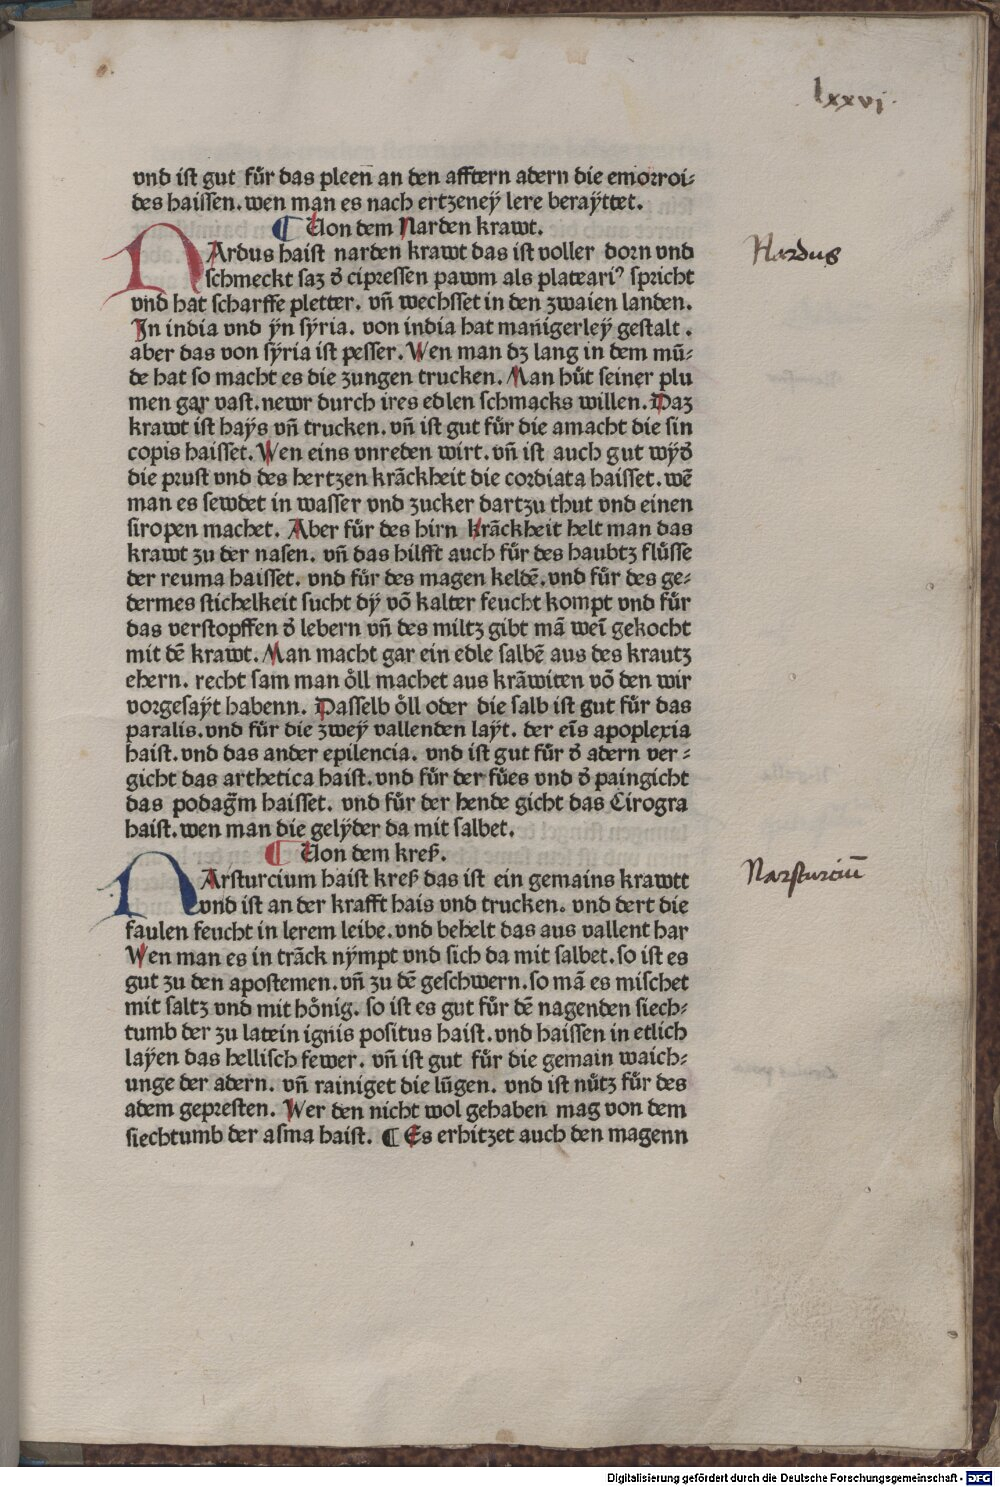 lxxvj.
vnd ist gut fuͤr das pleen̄ an den afftern adern die emorroi⸗
des haissen. wen man es nach ertzeneÿ lere beraÿttet.
¶ Uon dem Narden krawt.
Nardus
NArdus haist narden krawt das ist voller dorn vnd
schmeckt saz d̕ cipressen pawm als plateari⁹ spricht
vnd hat scharffe pletter. vn̄ wechsset in den zwaien landen.
Jn india vnd ÿn sÿria. von india hat man̄igerleÿ gestalt.
aber das von sÿria ist pesser. Wen man dz lang in dem mū⸗
de hat so macht es die zungen trucken. Man huͤt seiner plu
men gar vast. newr durch ires edlen schmacks willen. Daz
krawt ist haÿs vn̄ trucken. vn̄ ist gut fuͤr die amacht die sin
copis haisset. Wen eins vnreden wirt. vn̄ ist auch gut wÿd̕
die prust vnd des hertzen krāckheit die cordiata haisset. wē
man es sewdet in wasser vnd zucker dartzu thut vnd einen
siropen machet. Aber fuͤr des hirn krāckheit helt man das
krawt zu der nasen. vn̄ das hilfft auch fuͤr des haubtz fluͤsse
der reuma haisset. vnd fuͤr des magen keldē. vnd fuͤr des ge⸗
dermes stichelkeit sucht dÿ vō kalter feucht kompt vnd fuͤr
das verstopffen d̕ lebern vn̄ des miltz gibt mā weī gekocht
mit dē krawt. Man macht gar ein edle salbē aus des krautz
ehern. recht sam man oͤll machet aus krāwiten vō den wir
vorgesaÿt habenn. Dasselb oͤll oder die salb ist gut fuͤr das
paralis. vnd fuͤr die zweÿ vallenden laÿt. der eīs apoplexia
haist. vnd das ander epilencia. vnd ist gut fuͤr d̕ adern ver⸗
gicht das arthetica haist. vnd fuͤr der fuͤes vnd d̕ paingicht
das podag̃m haisset. vnd fuͤr der hende gicht das Cirogra
haist. wen man die gelÿder da mit salbet.
¶ Uon dem kreß.
Narsturciū
NArsturcium haist kreß das ist ein gemains krawtt
vnd ist an der krafft hais vnd trucken. vnd dert die
faulen feucht in lerem leibe. vnd behelt das aus vallent har
Wen man es in trāck nÿmpt vnd sich da mit salbet. so ist es
gut zu den apostemen. vn̄ zu dē geschwern. so mā es mischet
mit saltz vnd mit hoͤnig. so ist es gut fuͤr dē nagenden siech⸗
tumb der zu latein ignis positus haist. vnd haissen in etlich
laÿen das hellisch fewer. vn̄ ist gut fuͤr die gemain waich⸗
unge der adern. vn̄ rainiget die lūgen. vnd ist nuͤtz fuͤr des
adem gepresten. Wer den nicht wol gehaben mag von dem
siechtumb der asma haist. ¶ Es erhitzet auch den magenn
Digitalisierung gefördert durch die Deutsche Forschungsgemeinschaft - DFG